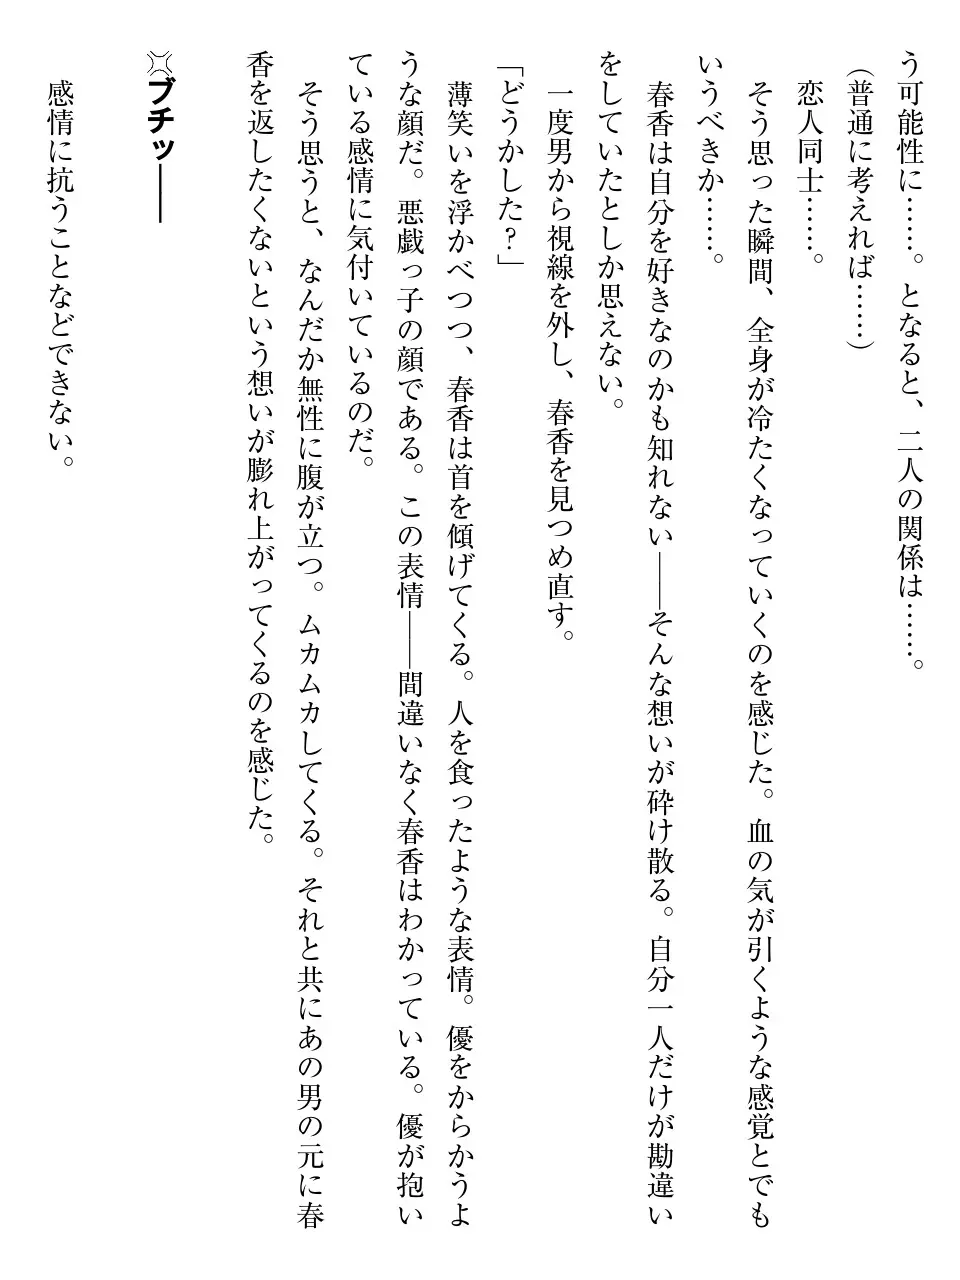 う可能性に……。となると、二人の関係は……。
（普通に考えれば……）
恋人同士……。
そう思った瞬間、全身が冷たくなっていくのを感じた。血の気が引くような感覚とでも
いうべきか……。
春香は自分を好きなのかも知れない――そんな想いが砕け散る。自分一人だけが勘違い
をしていたとしか思えない。
一度男から視線を外し、春香を見つめ直す。
「どうかした？」
薄笑いを浮かべつつ、春香は首を傾げてくる。人を食ったような表情。優をからかうよ
うな顔だ。悪戯っ子の顔である。この表情――間違いなく春香はわかっている。優が抱い
ている感情に気付いているのだ。
そう思うと、なんだか無性に腹が立つ。ムカムカしてくる。それと共にあの男の元に春
香を返したくないという想いが膨れ上がってくるのを感じた。
💢ブチッ――
感情に抗うことなどできない。